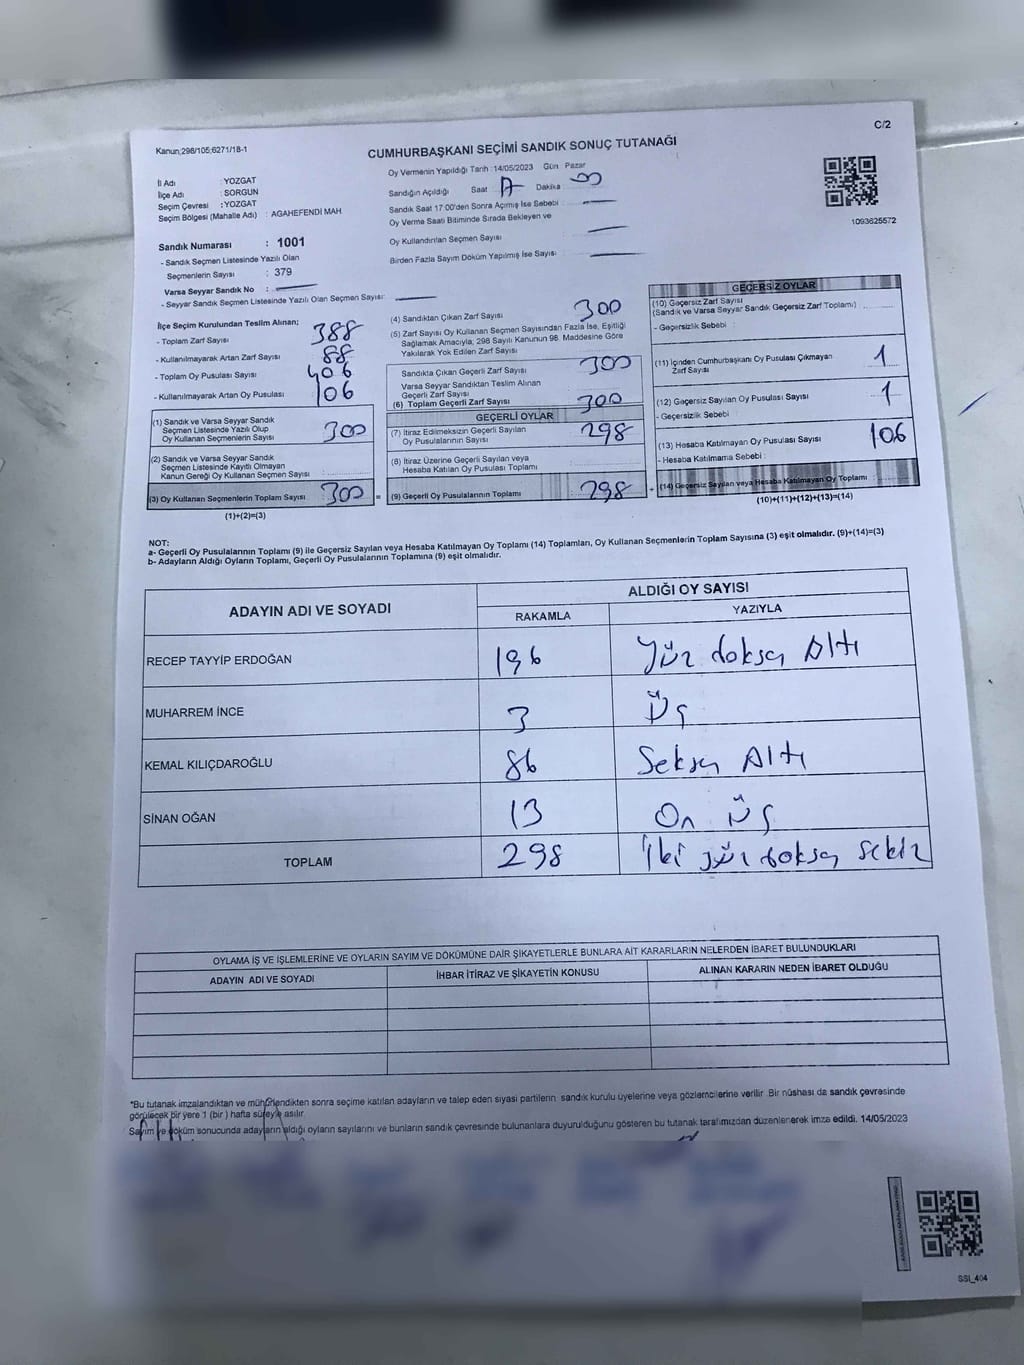 C/2
Kanun;298/105;6271/18-1
CUMHURBAŞKANI SEÇİMİ SANDIK SONUÇ TUTANAĞI
Oy Vermenin Yapıldığı Tarih :14/05/2023 Gün Pazar
İl Adı : YOZGAT
İlçe Adı : SORGUN
Seçim Çevresi : YOZGAT
Seçim Bölgesi (Mahalle Adı) : AGAHEFENDİ MAH
Sandığın Açıldığı Saat Dakika
Sandık Saat 17:00'den Sonra Açımış İse Sebebi :
Oy Verme Saati Bitiminde Sırada Bekleyen ve
Oy Kullandırılan Seçmen Sayısı
Birden Fazla Sayım Döküm Yapılmış İse Sayısı :
1093625572
Sandık Numarası : 1001
- Sandık Seçmen Listesinde Yazılı Olan
Seçmenlerin Sayısı : 379
Varsa Seyyar Sandık No :
- Seyyar Sandık Seçmen Listesinde Yazılı Olan Seçmen Sayısı:
İlçe Seçim Kurulundan Teslim Alınan;
- Toplam Zarf Sayısı 388
- Kullanılmayarak Artan Zarf Sayısı 88
- Toplam Oy Pusulası Sayısı 406
- Kullanılmayarak Artan Oy Pusulası 106
(1) Sandık ve Varsa Seyyar Sandık
Seçmen Listesinde Yazılı Olup
Oy Kullanan Seçmenlerin Sayısı 300
(2) Sandık ve Varsa Seyyar Sandık
Seçmen Listesinde Kayıtlı Olmayan
Kanun Gereği Oy Kullanan Seçmen Sayısı
(3) Oy Kullanan Seçmenlerin Toplam Sayısı 300 =
(1)+(2)=(3)
(4) Sandıktan Çıkan Zarf Sayısı 300
(5) Zarf Sayısı Oy Kullanan Seçmen Sayısından Fazla İse, Eşitliği
Sağlamak Amacıyla, 298 Sayılı Kanunun 98. Maddesine Göre
Yakılarak Yok Edilen Zarf Sayısı
Sandıkta Çıkan Geçerli Zarf Sayısı 300
Varsa Seyyar Sandıktan Teslim Alınan
Geçerli Zarf Sayısı
(6) Toplam Geçerli Zarf Sayısı 300
GEÇERLİ OYLAR
(7) İtiraz Edilmeksizin Geçerli Sayılan
Oy Pusulalarının Sayısı 298
(8) İtiraz Üzerine Geçerli Sayılan veya
Hesaba Katılan Oy Pusulası Toplamı
(9) Geçerli Oy Pusulalarının Toplamı 298 +
GEÇERSİZ OYLAR
(10) Geçersiz Zarf Sayısı
(Sandık ve Varsa Seyyar Sandık Geçersiz Zarf Toplamı)
- Geçersizlik Sebebi :
(11) İçinden Cumhurbaşkanı Oy Pusulası Çıkmayan
Zarf Sayısı 1
(12) Geçersiz Sayılan Oy Pusulası Sayısı 1
- Geçersizlik Sebebi
(13) Hesaba Katılmayan Oy Pusulası Sayısı 106
- Hesaba Katılmama Sebebi :
(14) Geçersiz Sayılan veya Hesaba Katılmayan Oy Toplamı
(10)+(11)+(12)+(13)=(14)
NOT:
a- Geçerli Oy Pusulalarının Toplamı (9) ile Geçersiz Sayılan veya Hesaba Katılmayan Oy Toplamı (14) Toplamları, Oy Kullanan Seçmenlerin Toplam Sayısına (3) eşit olmalıdır. (9)+(14)=(3)
b- Adayların Aldığı Oyların Toplamı, Geçerli Oy Pusulalarının Toplamına (9) eşit olmalıdır.
ADAYIN ADI VE SOYADI
ALDIĞI OY SAYISI
RAKAMLA YAZIYLA
RECEP TAYYİP ERDOĞAN 196 Yüz doksan Altı
MUHARREM İNCE 3 Üç
KEMAL KILIÇDAROĞLU 86 Seksen Altı
SİNAN OĞAN 13 On üç
TOPLAM 298 İki yüz doksan sekiz
OYLAMA İŞ VE İŞLEMLERİNE VE OYLARIN SAYIM VE DÖKÜMÜNE DAİR ŞİKAYETLERLE BUNLARA AİT KARARLARIN NELERDEN İBARET BULUNDUKLARI
ADAYIN ADI VE SOYADI İHBAR İTİRAZ VE ŞİKAYETİN KONUSU ALINAN KARARIN NEDEN İBARET OLDUĞU
*Bu tutanak imzalandıktan ve mühürlendikten sonra seçime katılan adayların ve talep eden siyasi partilerin sandık kurulu üyelerine veya gözlemcilerine verilir. Bir nüshası da sandık çevresinde
görülecek bir yere 1 (bir) hafta süreyle asılır.
Sayım ve döküm sonucunda adayların aldığı oyların sayılarını ve bunların sandık çevresinde bulunanlara duyurulduğunu gösteren bu tutanak tarafımızdan düzenlenerek imza edildi. 14/05/2023
SSI_404